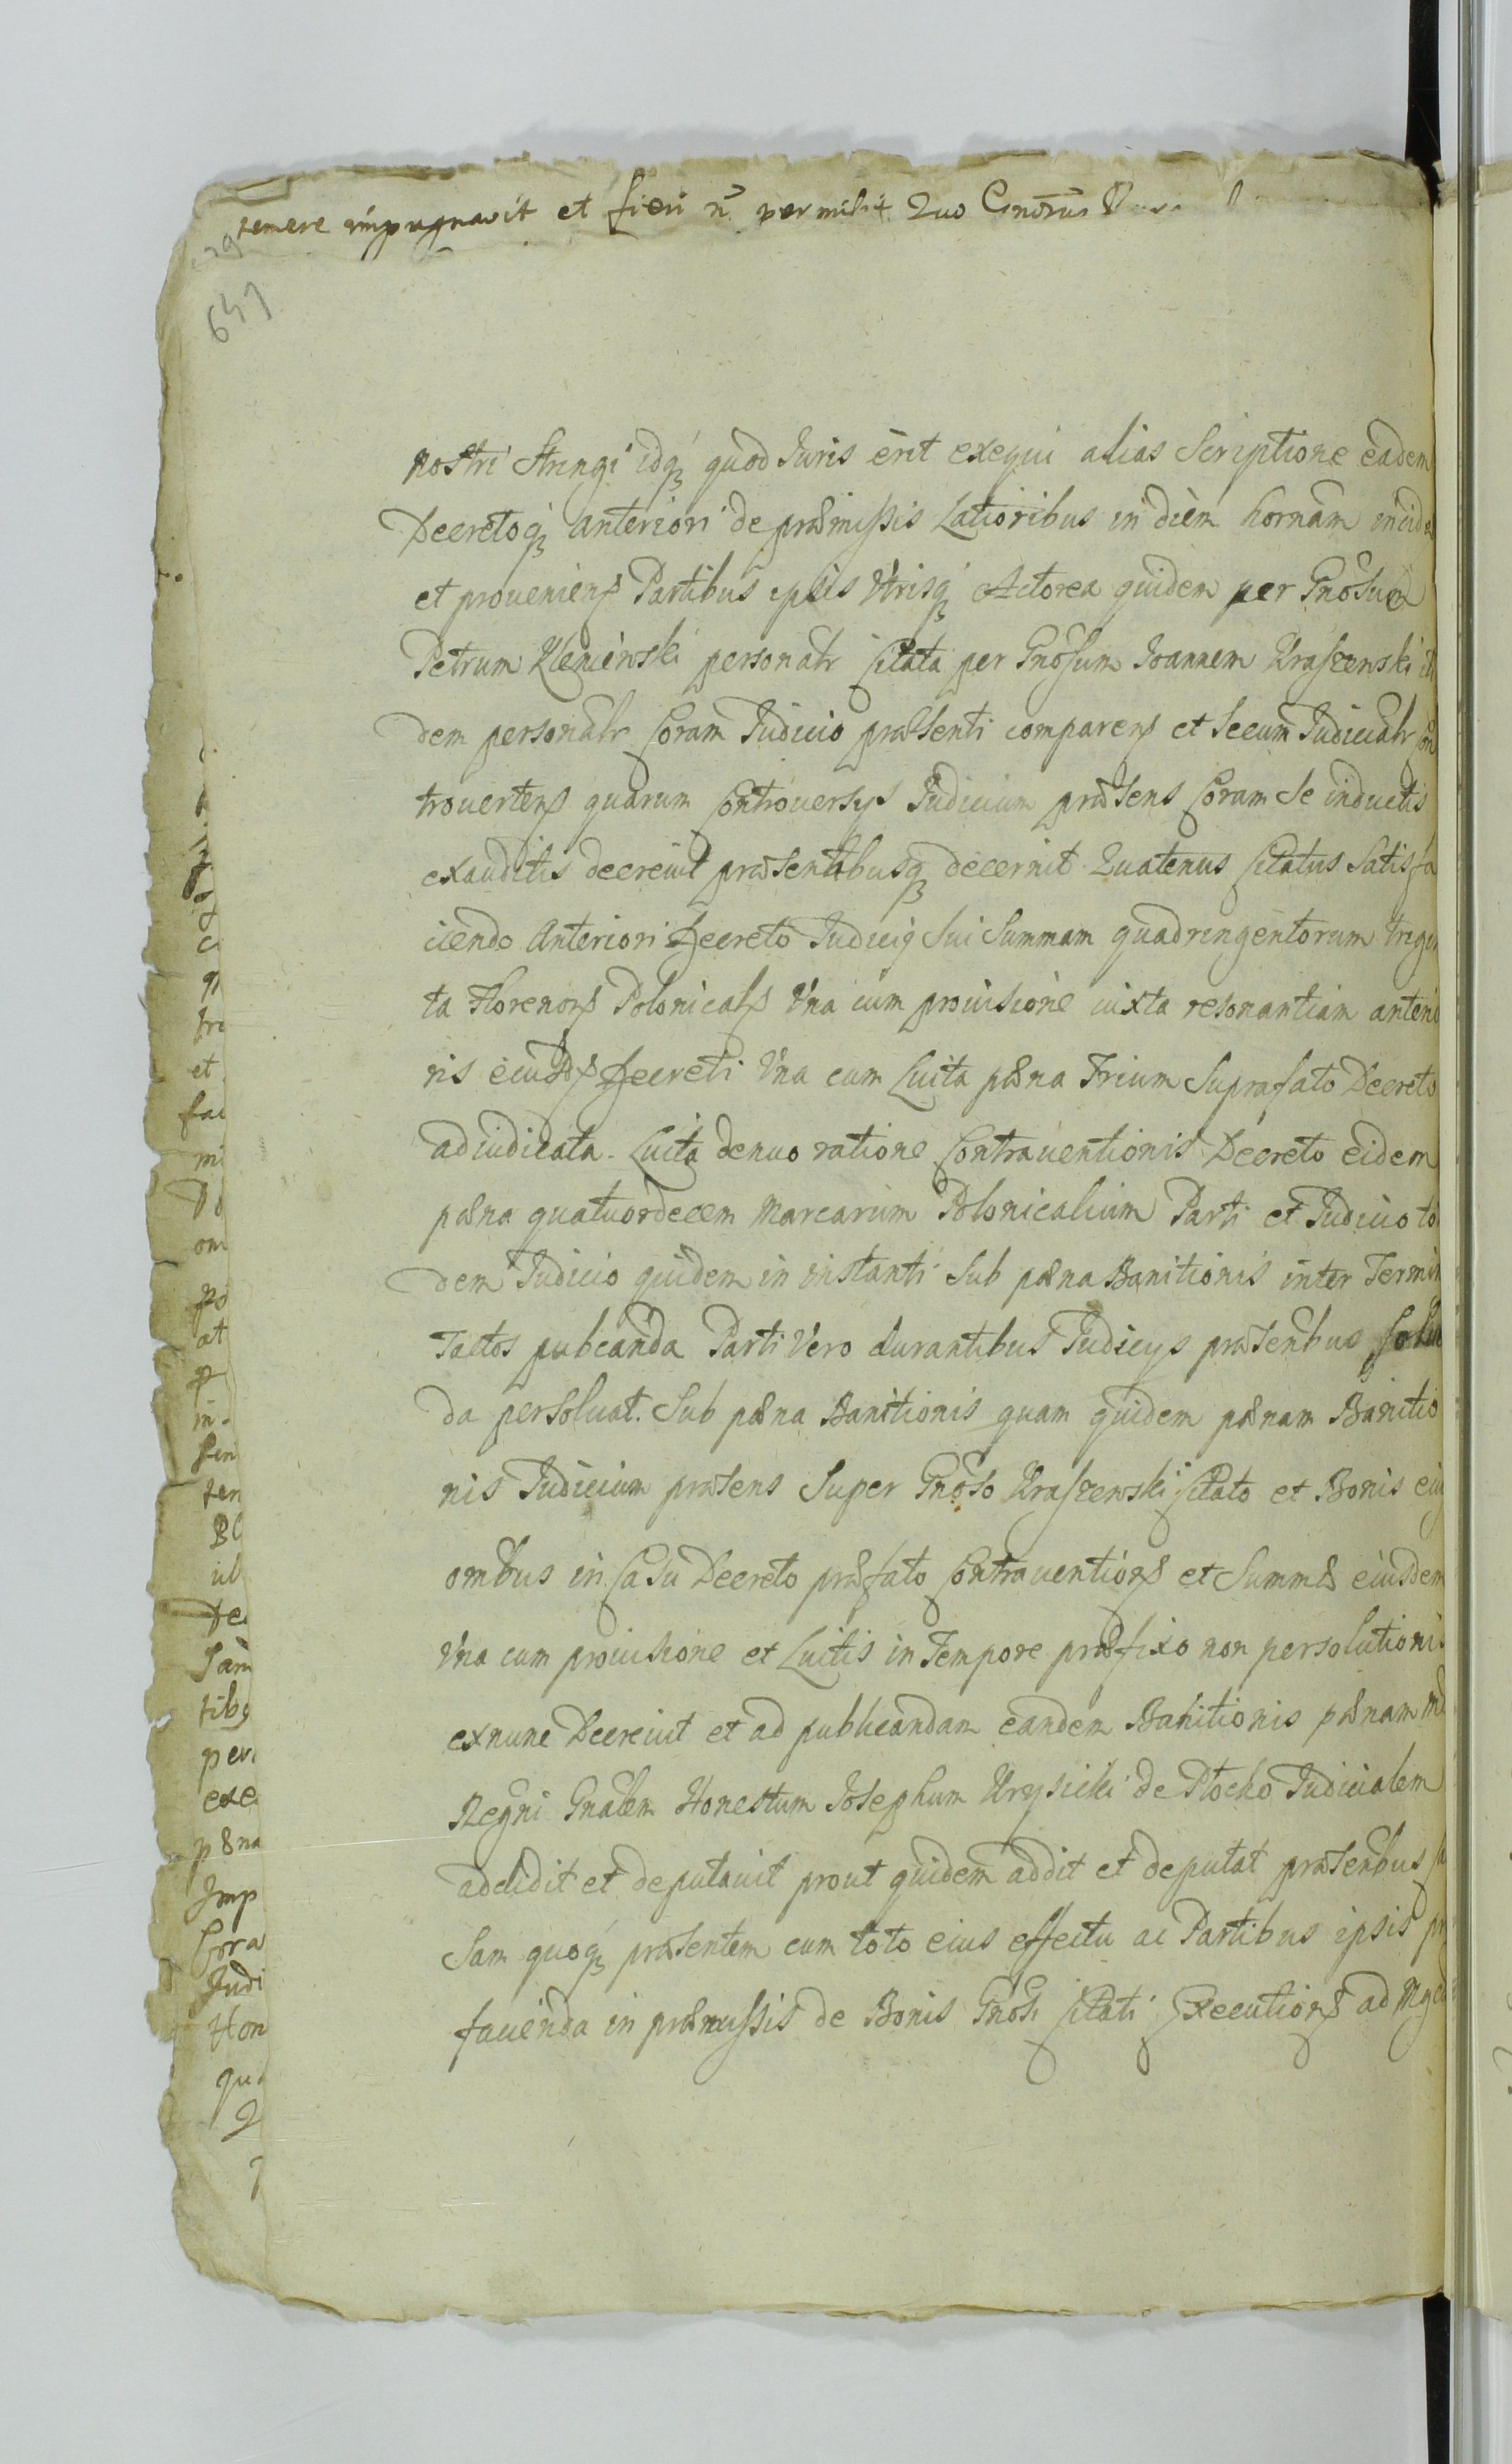 temere impugnavit et fieri n. permisit Quo Gnorus
641
nostri stringi idq quod Juris erit exequi alias Scriptione eadem
Decretoq anteriori de præmissis Latioribus in diem hornam incide
et proveniens Partibus ipsis Utrisq Actorea quidem per Gnosum
Petrum Kleniewski personalr Citata per Gnosum Joannem Kraszewski iti
dem personalr Coram Judicio præsenti comparens et secum Judicialr con
trovertens quarum Controversys Judicium præsens Coram Se inductis
exauditis decrevit præsentibusq decernit Quatenus Citatus Satisfa
ciendo Anteriori Decreto Judicij Sui Summam quadringentorum trigin
ta Florenors Polonicals Una cum provisione iuxta resonantiam anterio
ris eiusds Decreti Una cum Luita pæna Trium Suprafato Decreto
adiudicata. Luita denuo ratione Contraventionis Decreto eidem
pæna quatuordecem Marcarum Polonicalium Parti et Judicio to
dem Judicio quidem in instanti sub pæna Banitionis inter Termin
Tactos pubcanda Parti Vero durantibus Judicys præsenbus solu
da persolvat. Sub pæna Banitionis quam quidem pænam Banitio
nis Judicium præsens Super Gnoso Kraszewski Citato et Bonis eius
ombus in Casu Decreto præfato Contraventions et Summæ eiusdem
Una cum provisione et Luitis in Tempore præfixo non persolutionis
exnunc Decrevit et ad publicandam eandem Banitionis pænam
Regni Gnalem Honestum Josephum Krysicki de Plocko Judicialem
addidit et deputavit prout quidem addit et deputat præsenbus
Sam quoq præsentem cum toto eius effectu ac Partibus ipsis
facienda in præmissis de Bonis Gnosi Citati Executions ad